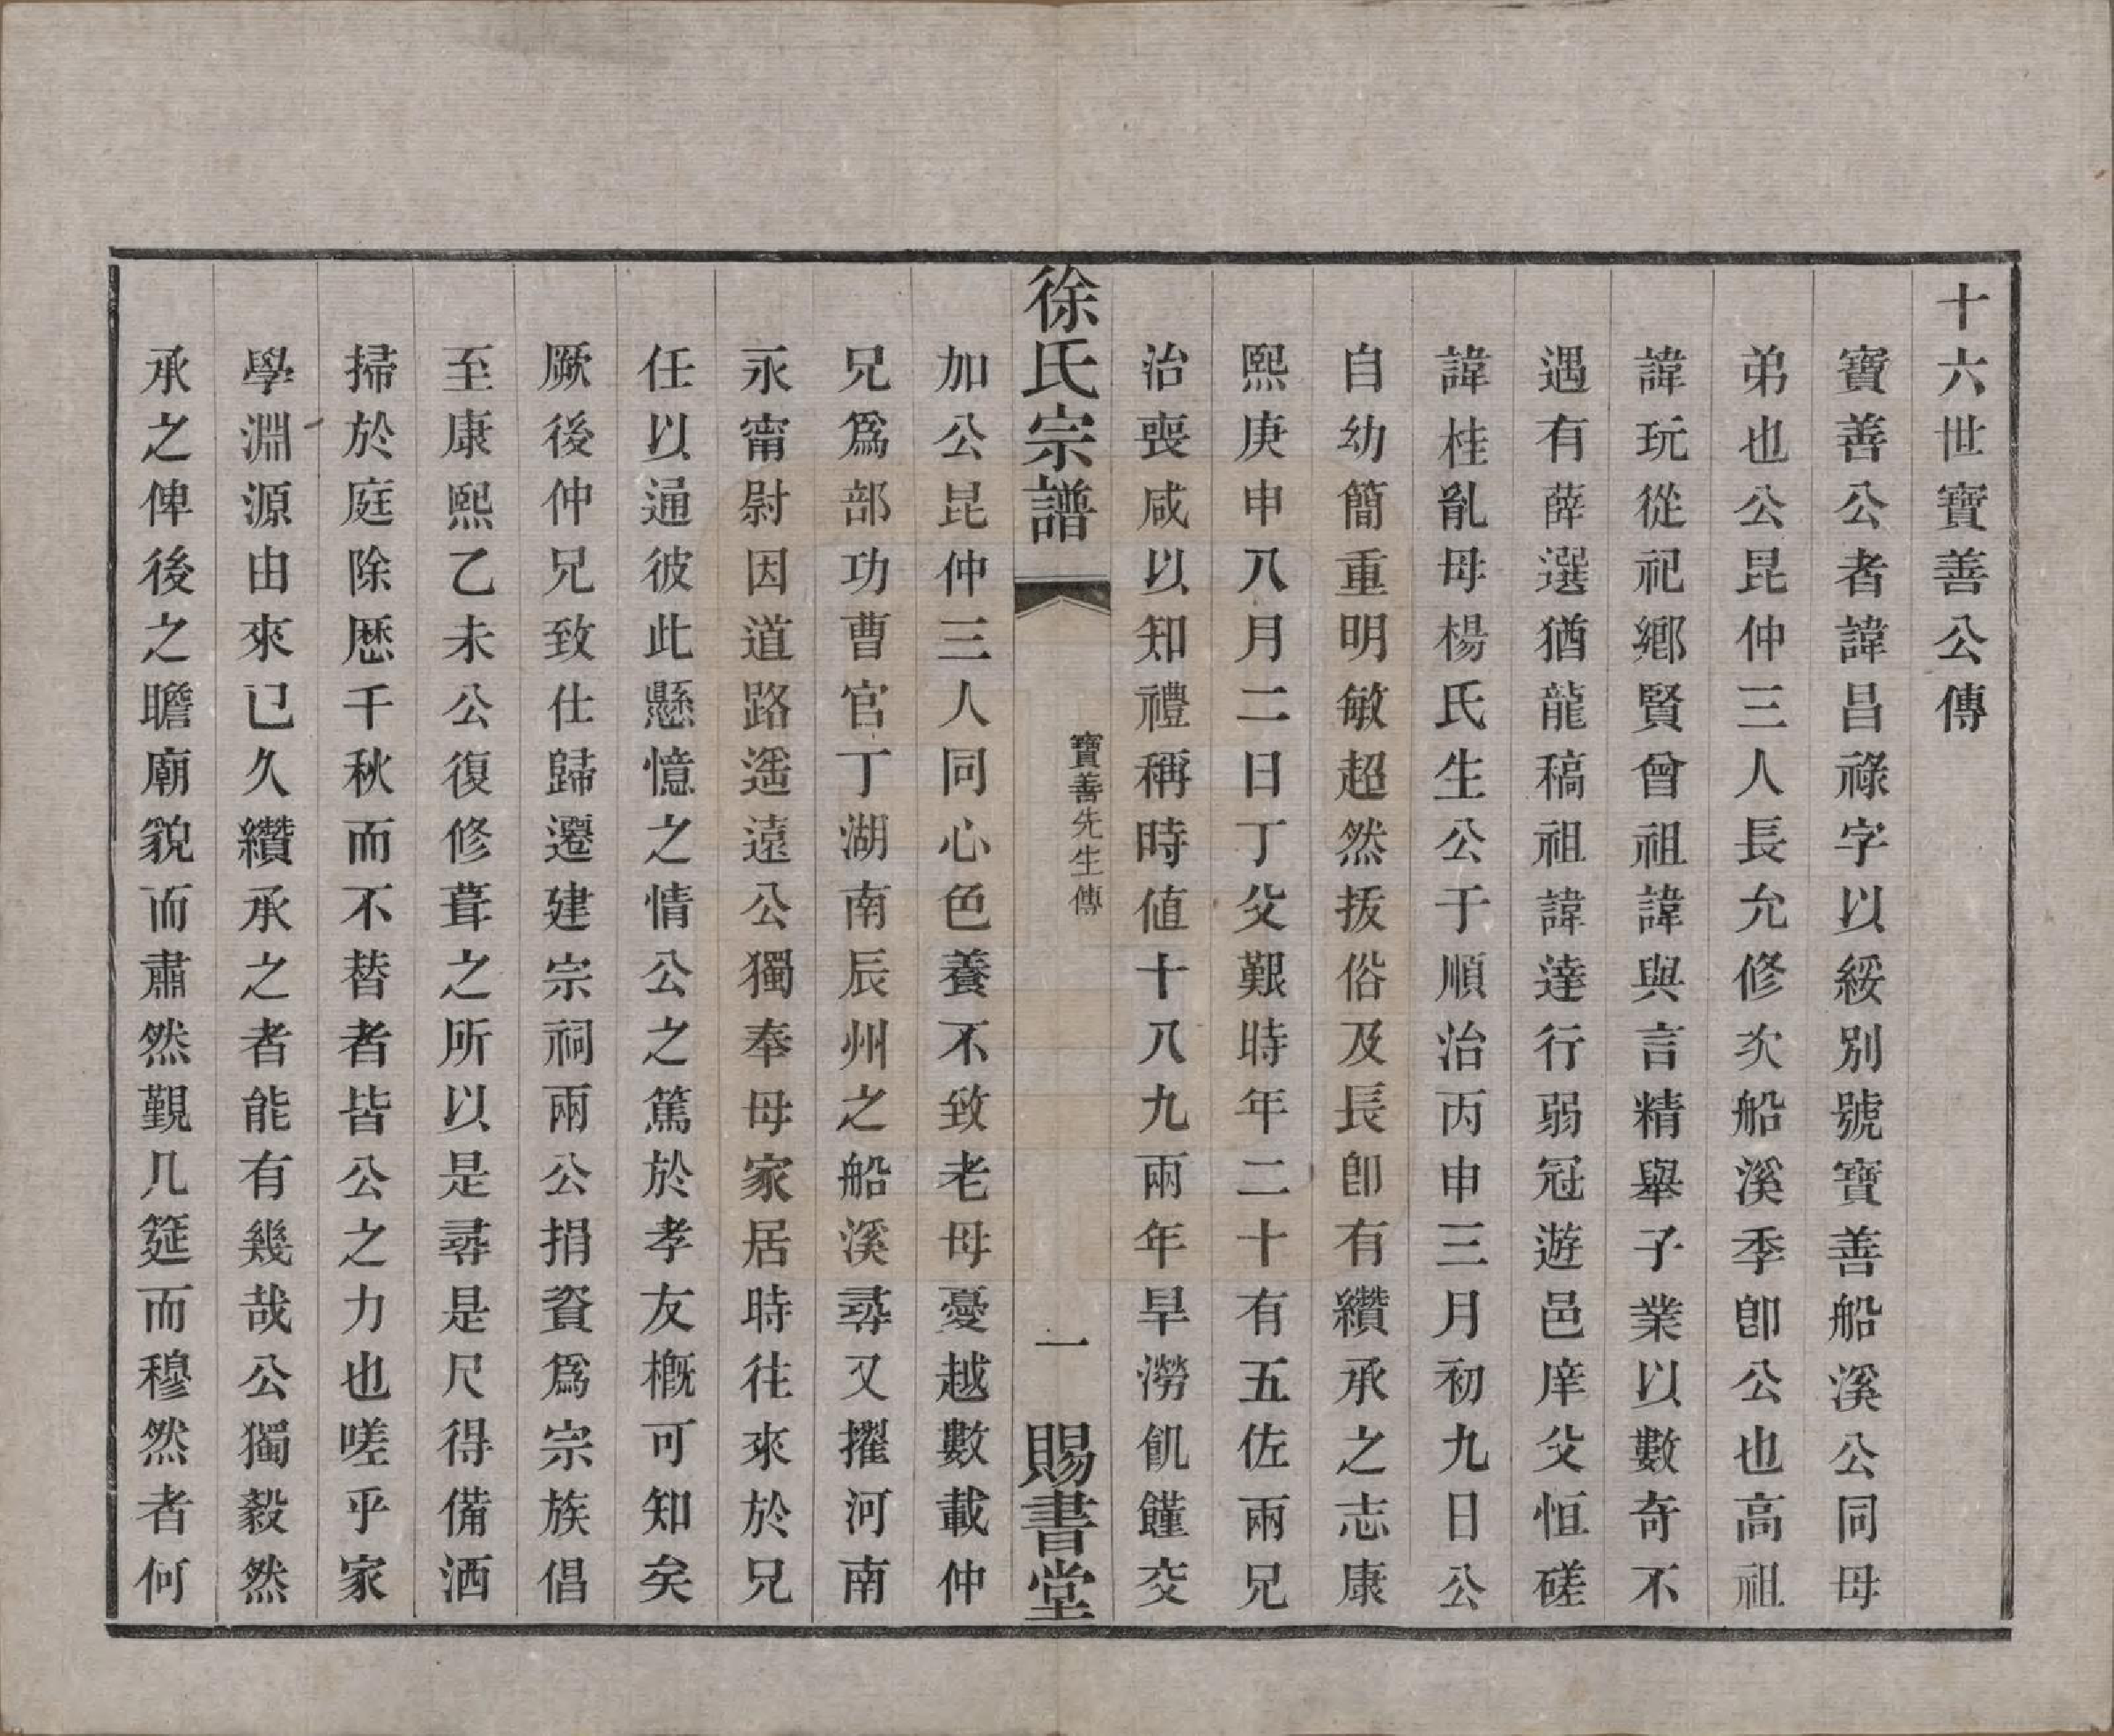 十六世寶善公傳
寶善公者諱昌祿字以綏別號寶善船溪公同母
弟也公昆仲三人長允修次船溪季卽公也高祖
諱玩從祀鄉賢曾祖諱與言精舉子業以數奇不
遇有薛選猶龍稿祖諱達行弱冠遊邑庠父恒磋
諱桂亂母楊氏生公于順治丙申三月初九日公
自幼簡重明敏超然拔俗及長卽有纘承之志康
熙庚申八月二日丁父艱時年二十有五佐兩兄
治喪咸以知禮稱時值十八九兩年旱澇飢饉交
徐氏宗譜
寶善先生傳
一
賜書堂
加公昆仲三人同心色養不致老母憂越數載仲
兄爲部功曹官丁湖南辰州之船溪尋又擢河南
永甯尉因道路遥遠公獨奉母家居時往來於兄
任以通彼此懸憶之情公之篤於孝友概可知矣
厥後仲兄致仕歸遷建宗祠兩公捐資爲宗族倡
至康熙乙未公復修葺之所以是尋是尺得備洒
掃於庭除歷千秋而不替者皆公之力也嗟乎家
學淵源由來已久纘承之者能有幾哉公獨毅然
承之俾後之瞻廟貌而肅然覲几筵而穆然者何